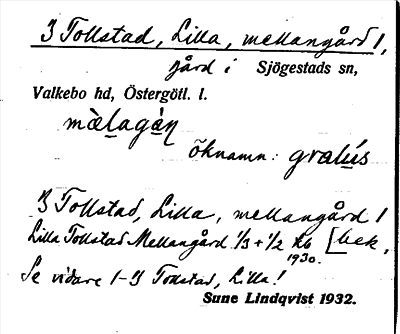 3 Tollstad, Lilla, mellangård 1,
gård i Sjögestads sn,
Valkebo hd, Östergötl. l.
mèlagàn
öknamn: gralús
3 Tollstad, Lilla, mellangård 1
Lilla Tollstad Mellangård 1/3 + 1/2 [bek,
1930.
Se vidare 1-3 Tollstad, Lilla!
Sune Lindqvist 1932.